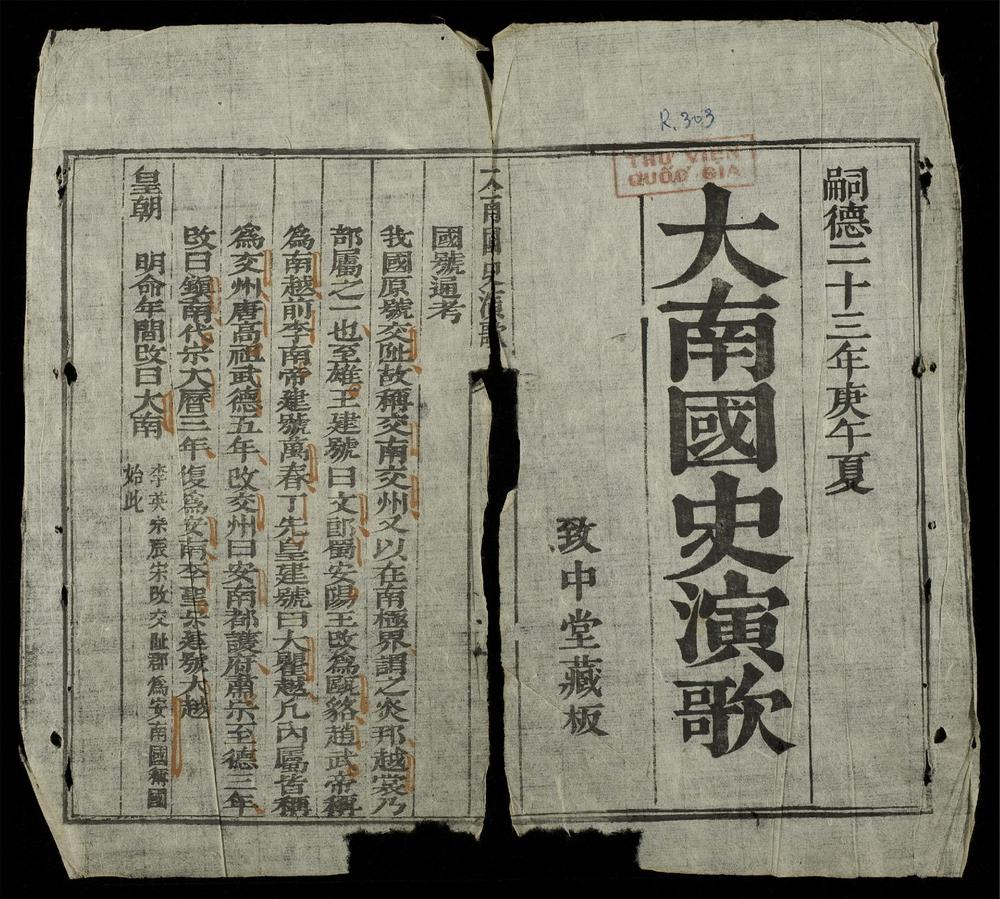 R.303
THƯ VIỆN
QUỐC GIA
嗣德二十三年庚午夏
大南國史演歌
致中堂藏板
大南國史演歌
國號通考
我國原號交趾故稱交南交州又以在南極界謂之炎邦越裳乃
部屬之一也至雄王建號曰文郎蜀安陽王改爲甌貉趙武帝稱
爲南越前李南帝建號萬春丁先皇建號曰大瞿越凡內屬皆稱
爲交州唐高祖武德五年改交州曰安南都護府肅宗至德三年
改曰鎮南代宗大曆三年復爲安南李聖宗建號大越
李英宗辰宋改交趾郡爲安南國稱國
始此
皇朝 明命年間改曰大南